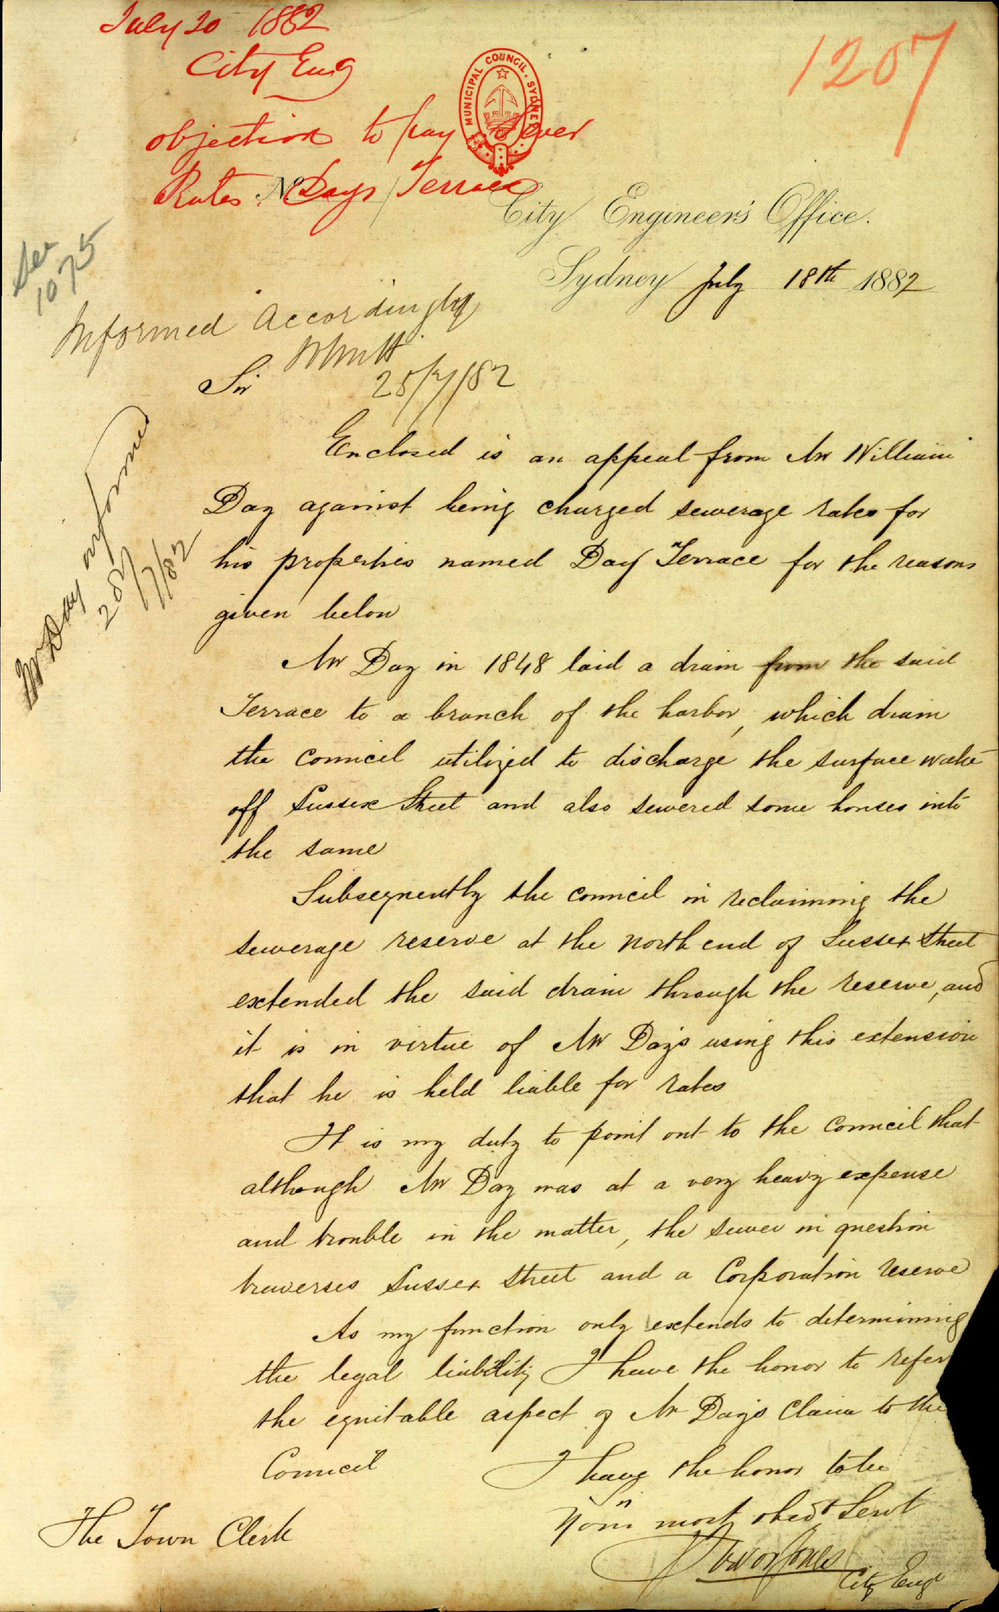 July 20 1882
City Eng
objection to pay Sewer
Rates. Days Terrace
No
MUNICIPAL COUNCIL. SYDNEY
1207
City Engineer's Office.
Sydney July 18th 1882
See
1075
Informed accordingly
25/7/82
Sir
Mr Day informed
28/7/82
Enclosed is an appeal from Mr William
Day against being charged sewerage rates for
his properties named Day Terrace for the reasons
given below
Mr Day in 1848 laid a drain from the said
Terrace to a branch of the harbor, which drain
the council utilized to discharge the surface water
off Sussex Street and also sewered some houses into
the same
Subseqnently the council in reclaiming the
sewerage reserve at the north end of Sussex Street
extended the said drain through the reserve, and
it is in virtue of Mr Days using this extension
that he is held liable for rates
It is my duty to point out to the Council that
although Mr Day was at a very heavy expense
and trouble in the matter, the sewer in question
traverses Sussex Street and a Corporation reserve
As my function only extends to determining
the legal liability I have the honor to refer
the equitable aspect of Mr Day's claim to the
Council
I have the honor to be
Your most obedt Servt
Trevor Jones
City Engr
The Town Clerk